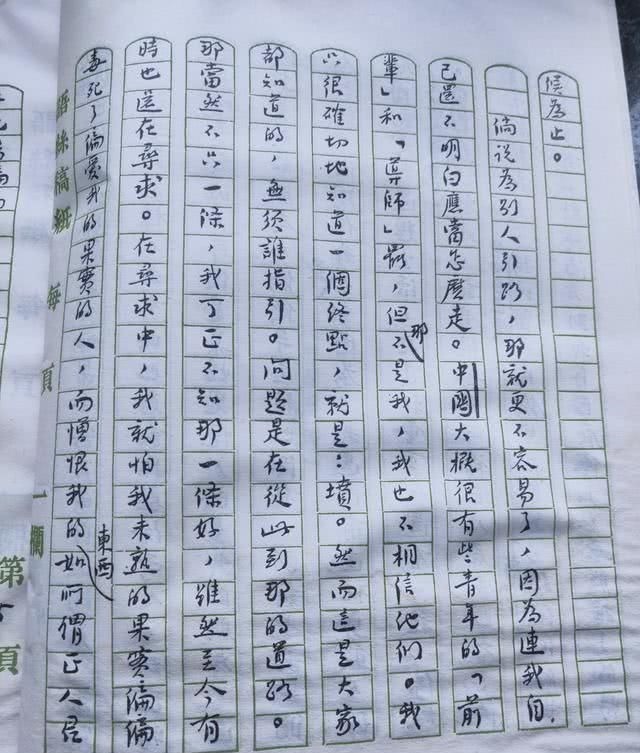 候為止。
倘說為別人引路，那就更不容易了，因為連我自
己還不明白應當怎麼走。中國大概很有些青年的「前
輩」和「導師」罷，但那不是我，我也不相信他們。我
只很確切地知道一個終點，就是：墳。然而這是大家
都知道的，無須誰指引。問題是在從此到那的道路。
那當然不只一條，我可正不知那一條好，雖然至今有
時也還在尋求。在尋求中，我就怕我未熟的果實偏偏
毒死了偏愛我的果實的人，而憎恨我的東西如所謂正人君
語絲稿紙 每頁一欄
第 頁